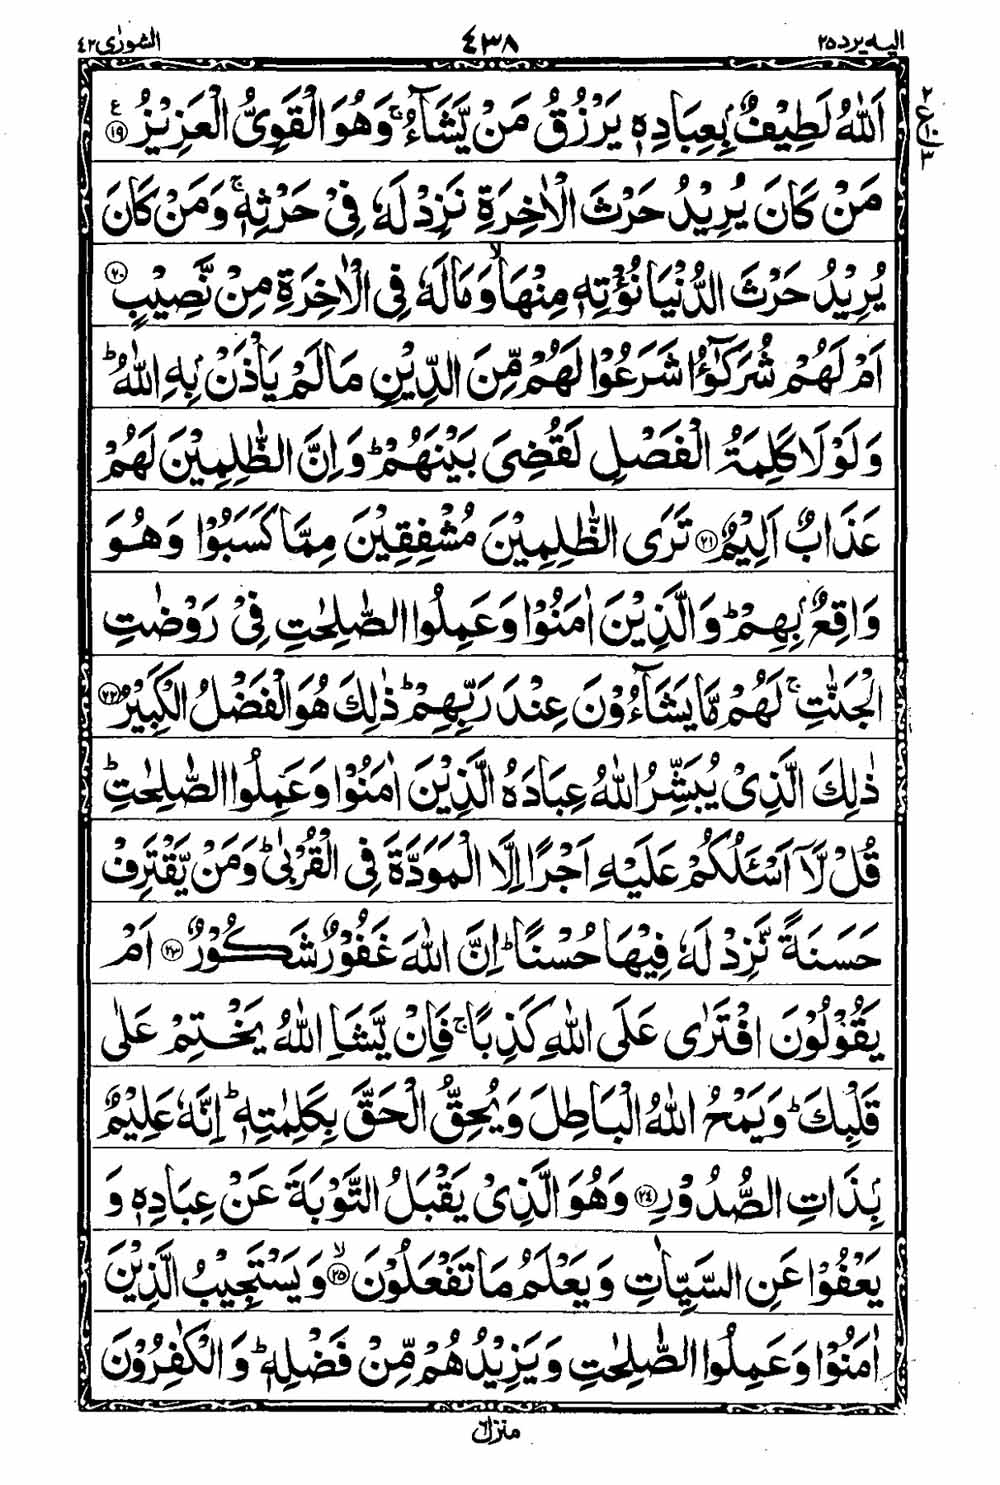 الیه یرد ۲۵
۴۳۸
الشورٰی ۴۲
۲
ع
۱۰
۳
اَللّٰهُ لَطِیْفٌۢ بِعِبَادِهٖ یَرْزُقُ مَنْ یَّشَآءُ ۚ وَهُوَ الْقَوِیُّ الْعَزِیْزُ ۠﴿۱۹﴾ ع
مَنْ كَانَ یُرِیْدُ حَرْثَ الْاٰخِرَةِ نَزِدْ لَهٗ فِیْ حَرْثِهٖ ۚ وَمَنْ كَانَ
یُرِیْدُ حَرْثَ الدُّنْیَا نُؤْتِهٖ مِنْهَا ۙ وَمَا لَهٗ فِی الْاٰخِرَةِ مِنْ نَّصِیْبٍ ﴿۲۰﴾
اَمْ لَهُمْ شُرَكٰٓؤُا شَرَعُوْا لَهُمْ مِّنَ الدِّیْنِ مَا لَمْ یَاْذَنْۢ بِهِ اللّٰهُ ؕ
وَلَوْلَا كَلِمَةُ الْفَصْلِ لَقُضِیَ بَیْنَهُمْ ؕ وَاِنَّ الظّٰلِمِیْنَ لَهُمْ
عَذَابٌ اَلِیْمٌ ﴿۲۱﴾ تَرَی الظّٰلِمِیْنَ مُشْفِقِیْنَ مِمَّا كَسَبُوْا وَهُوَ
وَاقِعٌۢ بِهِمْ ؕ وَالَّذِیْنَ اٰمَنُوْا وَعَمِلُوا الصّٰلِحٰتِ فِیْ رَوْضٰتِ
الْجَنّٰتِ ۚ لَهُمْ مَّا یَشَآءُوْنَ عِنْدَ رَبِّهِمْ ؕ ذٰلِكَ هُوَ الْفَضْلُ الْكَبِیْرُ ﴿۲۲﴾
ذٰلِكَ الَّذِیْ یُبَشِّرُ اللّٰهُ عِبَادَهُ الَّذِیْنَ اٰمَنُوْا وَعَمِلُوا الصّٰلِحٰتِ ؕ
قُلْ لَّاۤ اَسْـَٔلُكُمْ عَلَیْهِ اَجْرًا اِلَّا الْمَوَدَّةَ فِی الْقُرْبٰی ؕ وَمَنْ یَّقْتَرِفْ
حَسَنَةً نَّزِدْ لَهٗ فِیْهَا حُسْنًا ؕ اِنَّ اللّٰهَ غَفُوْرٌ شَكُوْرٌ ﴿۲۳﴾ اَمْ
یَقُوْلُوْنَ افْتَرٰی عَلَی اللّٰهِ كَذِبًا ۚ فَاِنْ یَّشَاِ اللّٰهُ یَخْتِمْ عَلٰی
قَلْبِكَ ؕ وَیَمْحُ اللّٰهُ الْبَاطِلَ وَیُحِقُّ الْحَقَّ بِكَلِمٰتِهٖ ؕ اِنَّهٗ عَلِیْمٌۢ
بِذَاتِ الصُّدُوْرِ ﴿۲۴﴾ وَهُوَ الَّذِیْ یَقْبَلُ التَّوْبَةَ عَنْ عِبَادِهٖ وَ
یَعْفُوْا عَنِ السَّیِّاٰتِ وَیَعْلَمُ مَا تَفْعَلُوْنَ ۙ﴿۲۵﴾ وَیَسْتَجِیْبُ الَّذِیْنَ
اٰمَنُوْا وَعَمِلُوا الصّٰلِحٰتِ وَیَزِیْدُهُمْ مِّنْ فَضْلِهٖ ؕ وَالْكٰفِرُوْنَ
منزل ۶